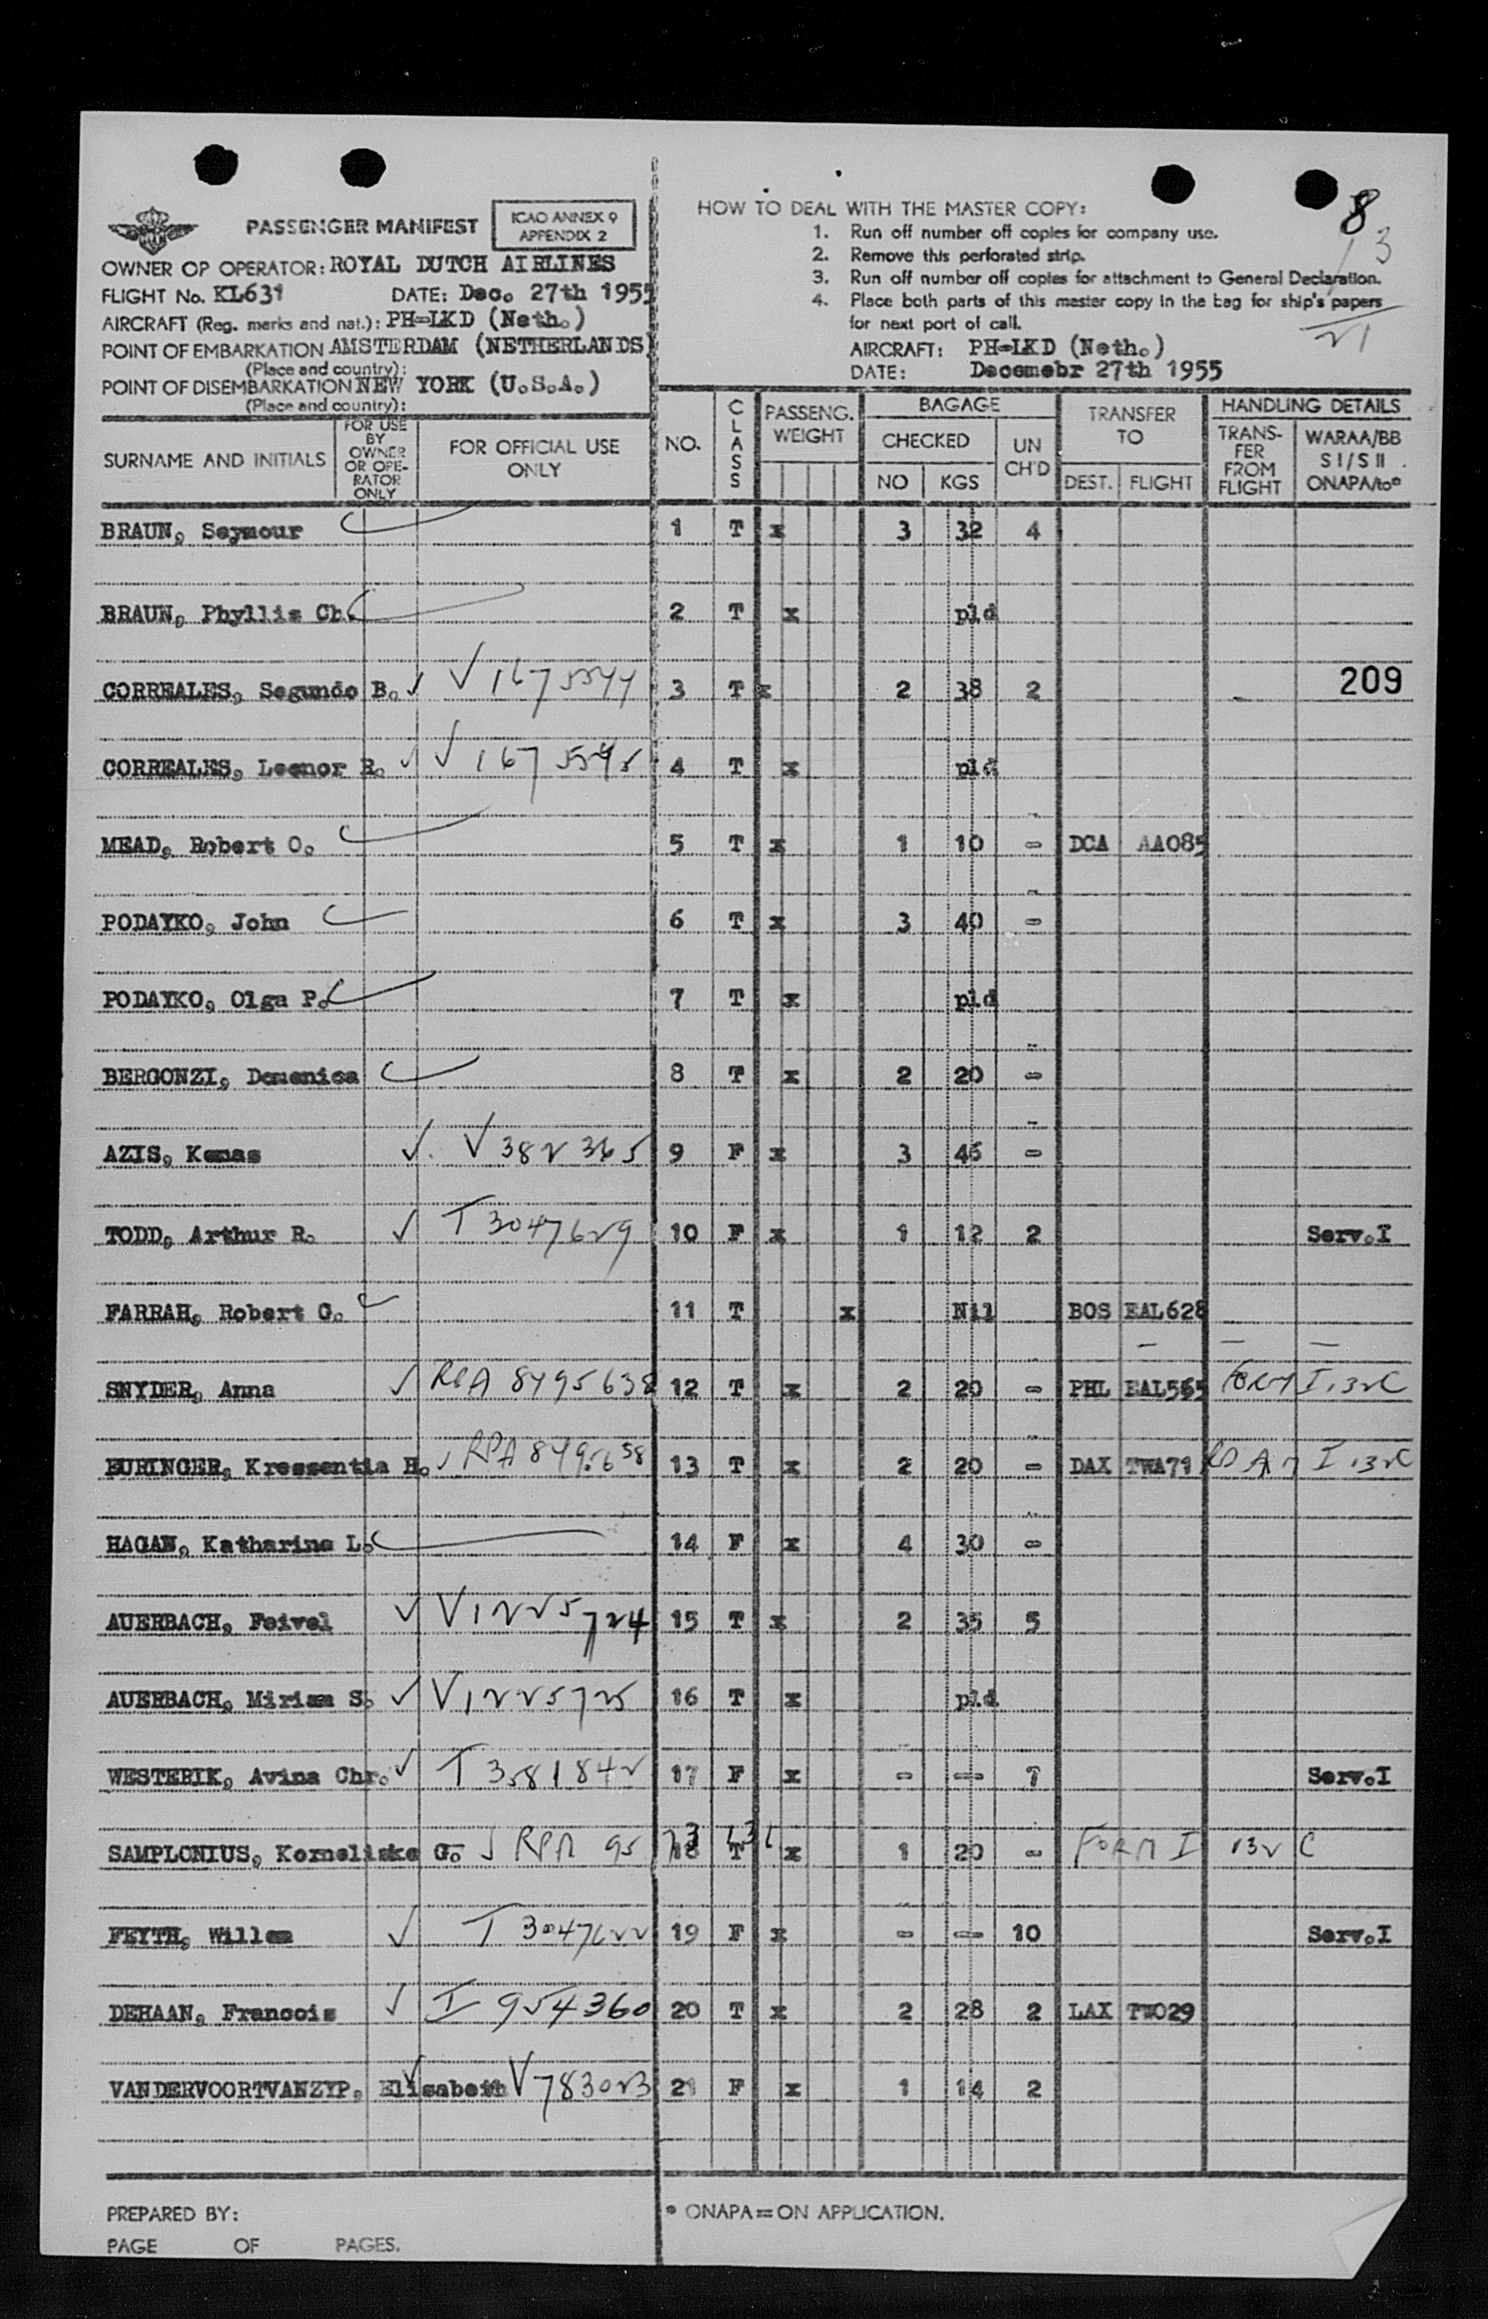 PASSENGER MANIFEST
ICAO ANNEX 9
APPENDIX 2
OWNER OP OPERATOR: ROYAL DUTCH AIRLINES
FLIGHT No. KL631 DATE: Dec. 27th 1955
AIRCRAFT (Reg. marks and nat.): PH-LKD (Neth.)
POINT OF EMBARKATION AMSTERDAM (NETHERLANDS)
(Place and country):
POINT OF DISEMBARKATION NEW YORK (U.S.A.)
(Place and country):
HOW TO DEAL WITH THE MASTER COPY:
1. Run off number off copies for company use.
2. Remove this perforated strip.
3. Run off number off copies for attachment to General Declaration.
4. Place both parts of this master copy in the bag for ship's papers
for next port of call.
AIRCRAFT: PH-LKD (Neth.)
DATE: Decemebr 27th 1955
8
13
21
SURNAME AND INITIALS
FOR USE BY OWNER OR OPE- RATOR ONLY
FOR OFFICIAL USE ONLY
NO. CLASS PASSENG. WEIGHT BAGAGE CHECKED NO KGS UN CH'D TRANSFER TO DEST. FLIGHT HANDLING DETAILS TRANS- FER FROM FLIGHT WARAA/BB S I/S II ONAPA/to*
BRAUN, Seymour 1 T x 3 32 4
BRAUN, Phyllis Ch. 2 T x pld
CORREALES, Segundo B. ✓ V1675544 3 T x 2 38 2 209
CORREALES, Leonor R. ✓ V1675545 4 T x pld
MEAD, Robert O. 5 T x 1 10 - DCA AA085
PODAYKO, John 6 T x 3 40 -
PODAYKO, Olga P. 7 T x pld
BERGONZI, Domenica 8 T x 2 20 -
AZIS, Kemas ✓ V382365 9 F x 3 46 -
TODD, Arthur R. ✓ T3047629 10 F x 1 12 2 Serv.I
FARRAH, Robert G. 11 T x Nil BOS EAL628
SNYDER, Anna ✓ RPA 8495638 12 T x 2 20 - PHL EAL565 FORM I.132C
EURINGER, Kressentia H. ✓ RPA 8495658 13 T x 2 20 - DAX TWA71 I.132C
HAGAN, Katharina L. 14 F x 4 30 -
AUERBACH, Feivel ✓ V1225724 15 T x 2 35 5
AUERBACH, Miriam S. ✓ V1225725 16 T x pld
WESTERIK, Avina Chr. ✓ T3581842 17 F x - -- 1 Serv.I
SAMPLONIUS, Korneliske G. ✓ RPA 95 18 T x 1 20 - FORM I 132C
FEYTH, Willem ✓ T3047622 19 F x - -- 10 Serv.I
DEHAAN, Francois ✓ I 954360 20 T x 2 28 2 LAX TW029
VANDERVOORTVANZYP, Elisabeth ✓ V783023 21 F x 1 14 2
PREPARED BY:
* ONAPA = ON APPLICATION.
PAGE OF PAGES.